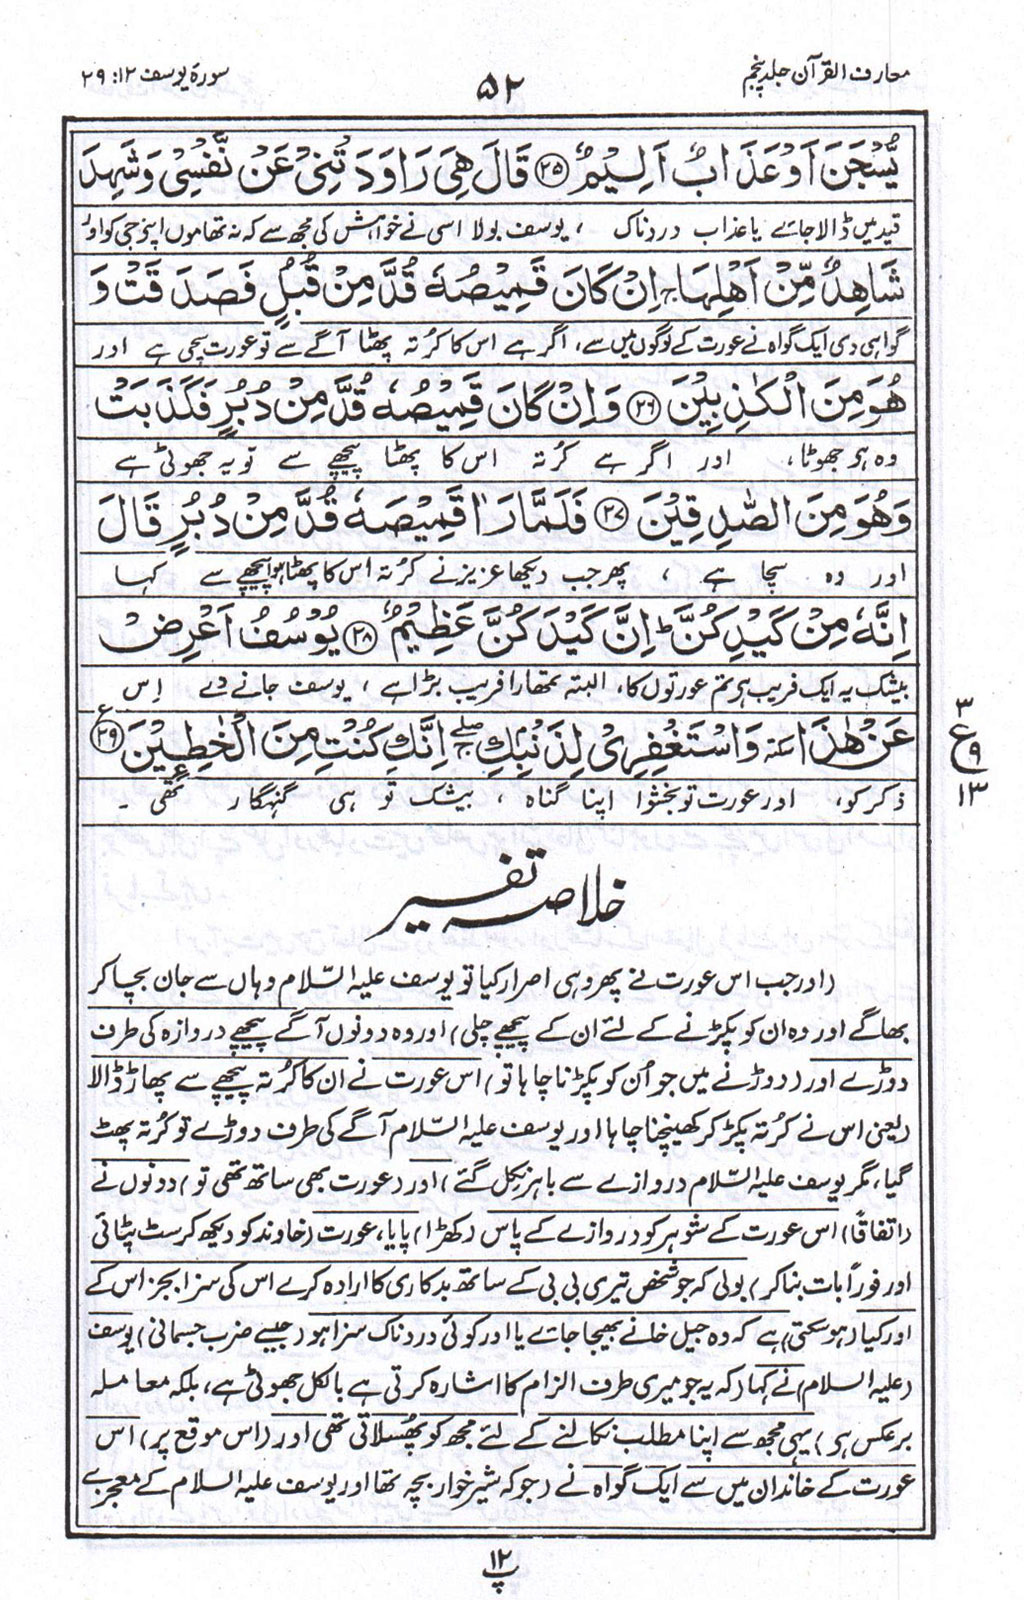 معارف القرآن جلد پنجم
۵۲
سورۂ یوسف ۱۲ : ۲۹
يُّسْجَنَ اَوْ عَذَابٌ اَلِيْمٌ ﴿۲۵﴾ قَالَ هِيَ رَاوَدَتْنِيْ عَنْ نَّفْسِيْ وَشَهِدَ
قید میں ڈالا جائے یا عذاب دردناک ، یوسف بولا اسی نے خواہش کی مجھ سے کہ نہ تھاموں اپنے جی کو اور
شَاهِدٌ مِّنْ اَهْلِهَا ۚ اِنْ كَانَ قَمِيْصُهٗ قُدَّ مِنْ قُبُلٍ فَصَدَقَتْ وَ
گواہی دی ایک گواہ نے عورت کے لوگوں میں سے، اگر ہے اس کا کرتہ پھٹا آگے سے تو عورت سچی ہے اور
هُوَ مِنَ الْكٰذِبِيْنَ ﴿۲۶﴾ وَاِنْ كَانَ قَمِيْصُهٗ قُدَّ مِنْ دُبُرٍ فَكَذَبَتْ
وہ ہے جھوٹا، اور اگر ہے کُرتہ اس کا پھٹا پیچھے سے تو یہ جھوٹی ہے
وَهُوَ مِنَ الصّٰدِقِيْنَ ﴿۲۷﴾ فَلَمَّا رَاٰ قَمِيْصَهٗ قُدَّ مِنْ دُبُرٍ قَالَ
اور وہ سچا ہے ، پھر جب دیکھا عزیز نے کرتہ اس کا پھٹا ہوا پیچھے سے کہا
اِنَّهٗ مِنْ كَيْدِكُنَّ ؕ اِنَّ كَيْدَكُنَّ عَظِيْمٌ ﴿۲۸﴾ يُوْسُفُ اَعْرِضْ
بیشک یہ ایک فریب ہے تم عورتوں کا، البتہ تمھارا فریب بڑا ہے ، یوسف جانے دے اِس
عَنْ هٰذَا ٚ وَاسْتَغْفِرِيْ لِذَنْۢبِكِ ۖۚ اِنَّكِ كُنْتِ مِنَ الْخٰطِـِٕيْنَ ﴿۲۹﴾
۳
ع ۹
۱۳
ذکر کو، اور عورت تو بخشوا اپنا گناہ ، بیشک تو ہی گنہگار تھی ۔
خلاصہ تفسیر
(اور جب اس عورت نے پھر وہی اصرار کیا تو یوسف علیہ السّلام وہاں سے جان بچا کر
بھاگے اور وہ ان کو پکڑنے کے لئے ان کے پیچھے چلی) اور وہ دونوں آگے پیچھے دروازہ کی طرف
دوڑے اور (دوڑنے میں جو اُن کو پکڑنا چاہا تو) اس عورت نے ان کا کُرتہ پیچھے سے پھاڑ ڈالا
(یعنی اس نے کُرتہ پکڑ کر کھینچنا چاہا اور یوسف علیہ السّلام آگے کی طرف دوڑے تو کُرتہ پھٹ
گیا، مگر یوسف علیہ السّلام دروازے سے باہر نکل گئے) اور (عورت بھی ساتھ تھی تو) دونوں نے
(اتفاقاً) اس عورت کے شوہر کو دروازے کے پاس (کھڑا) پایا، عورت (خاوند کو دیکھ کر سٹ پٹائی
اور فوراً بات بنا کر) بولی کہ جو شخص تیری بی بی کے ساتھ بدکاری کا ارادہ کرے اس کی سزا بجز اس کے
اور کیا (ہو سکتی) ہے کہ وہ جیل خانے بھیجا جائے یا اور کوئی دردناک سزا ہو (جیسے ضرب جسمانی) یوسف
(علیہ السلام) نے کہا (کہ یہ جو میری طرف الزام کا اشارہ کرتی ہے بالکل جھوٹی ہے، بلکہ معاملہ
برعکس ہے) یہی مجھ سے اپنا مطلب نکالنے کے لئے مجھ کو پھُسلاتی تھی اور (اس موقع پر) اس
عورت کے خاندان میں سے ایک گواہ نے (جو کہ شیرخوار بچہ تھا اور یوسف علیہ السلام کے معجزے
۱۲
پ